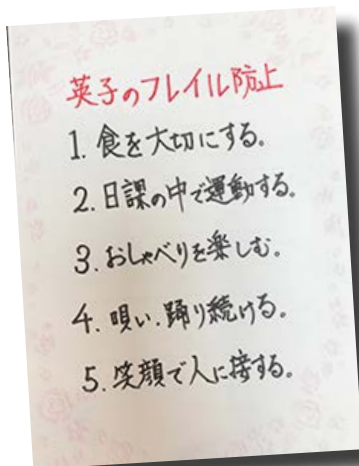 英子のフレイル防止
1. 食を大切にする。
2. 日課の中で運動する。
3. おしゃべりを楽しむ。
4. 唄い.踊り続ける。
5. 笑顔で人に接する。